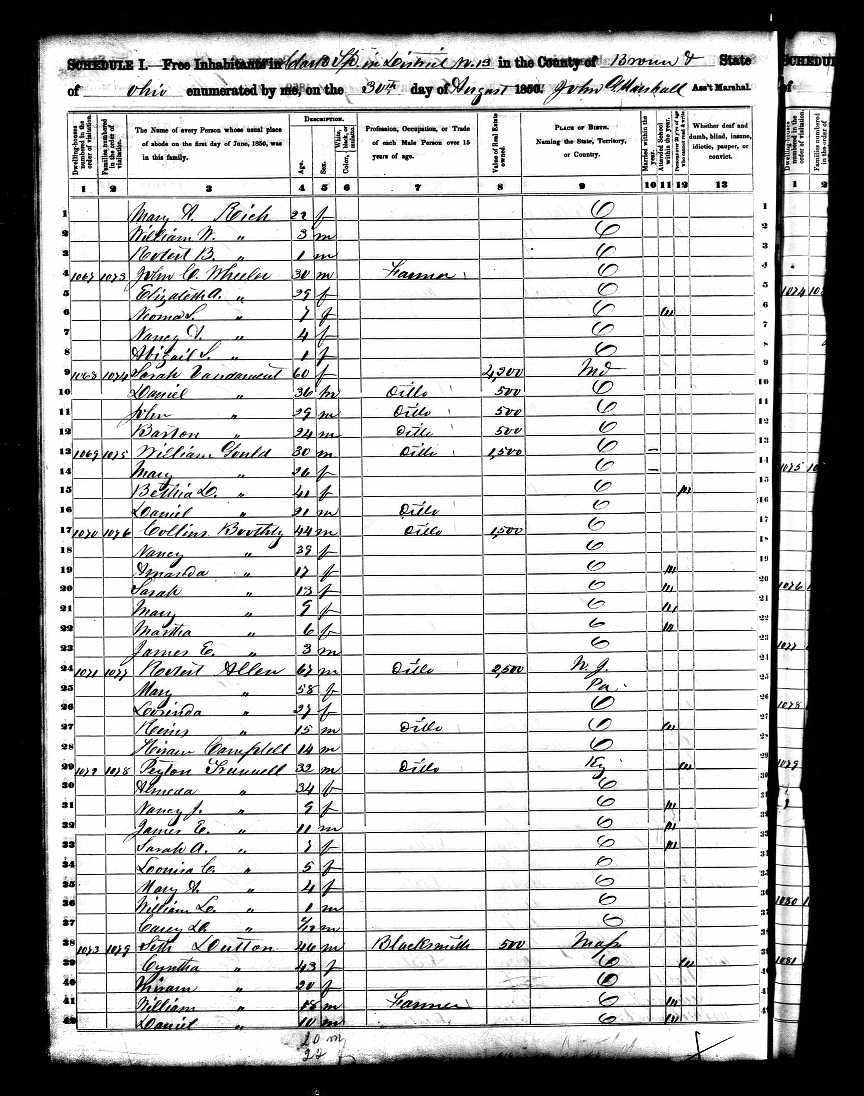 SCHEDULE I. Free Inhabitants in Clark Tp. in District N. 13 in the County of Brown & State
of Ohio enumerated by me, on the 30th day of August 1850. John G. Marshall Ass't Marshal.
Dwelling-houses numbered in the order of visitation.
Families numbered in the order of visitation.
The Name of every Person whose usual place of abode on the first day of June, 1850, was in this family.
DESCRIPTION.
Age.
Sex.
White, black, or mulatto.
Color,
Profession, Occupation, or Trade of each Male Person over 15 years of age.
Value of Real Estate owned.
PLACE OF BIRTH. Naming the State, Territory, or Country.
Married within the year.
Attended School within the year.
Persons over 20 y'rs of age who cannot read & write.
Whether deaf and dumb, blind, insane, idiotic, pauper, or convict.
1 2 3 4 5 6 7 8 9 10 11 12 13
1 Mary A. Reich 22 f O 1
2 William W. " 3 m O 2
3 Robert B. " 1 m O 3
4 1067 1073 John C. Wheeler 30 m Farmer O 4
5 Elizabeth A. " 29 f O 5
6 Neoma S. " 7 f O 6
7 Nancy " 4 f O 7
8 Abigail S. " 1 f O 8
9 1068 1074 Sarah Vandament 60 f 4,300 Md 9
10 Daniel " 36 m Ditto 500 O
11 John " 29 m Ditto 500 O
12 Barton " 24 m Ditto 500 O
13 1069 1075 William Gould 30 m Ditto 1,500 O
14 Mary " 26 f O
15 Bethia D. " 41 f O
16 Daniel " 21 m Ditto O
17 1070 1076 Collins Boothby 44 m Ditto 1,500 O
18 Nancy " 39 f O
19 Amanda " 17 f O
20 Sarah " 13 f O
21 Mary " 9 f O
22 Martha " 6 f O
23 James E. " 3 m O
24 1071 1077 Robert Allen 67 m Ditto 2,500 N. J.
25 Mary " 58 f Pa.
26 Lorinda " 27 f O
27 " 15 m Ditto O
28 Hiram Campbell 14 m O
29 1072 1078 Peyton Trunnell 32 m Ditto Ky
30 Almeda " 34 f O
31 Nancy J. " 9 f O
32 James E. " 11 m O
33 Sarah A. " 7 f O
34 Louisa C. " 5 f O
35 Mary A. " 4 f O
36 William L. " 1 m O
37 Casey D. " m O
38 1073 1079 Seth Dutton 46 m Blacksmith 500 Mass
39 Cyntha " 43 f O
40 " 20 f O
41 William " 18 m Farmer O
42 Daniel " 10 m O
20 m
22 f